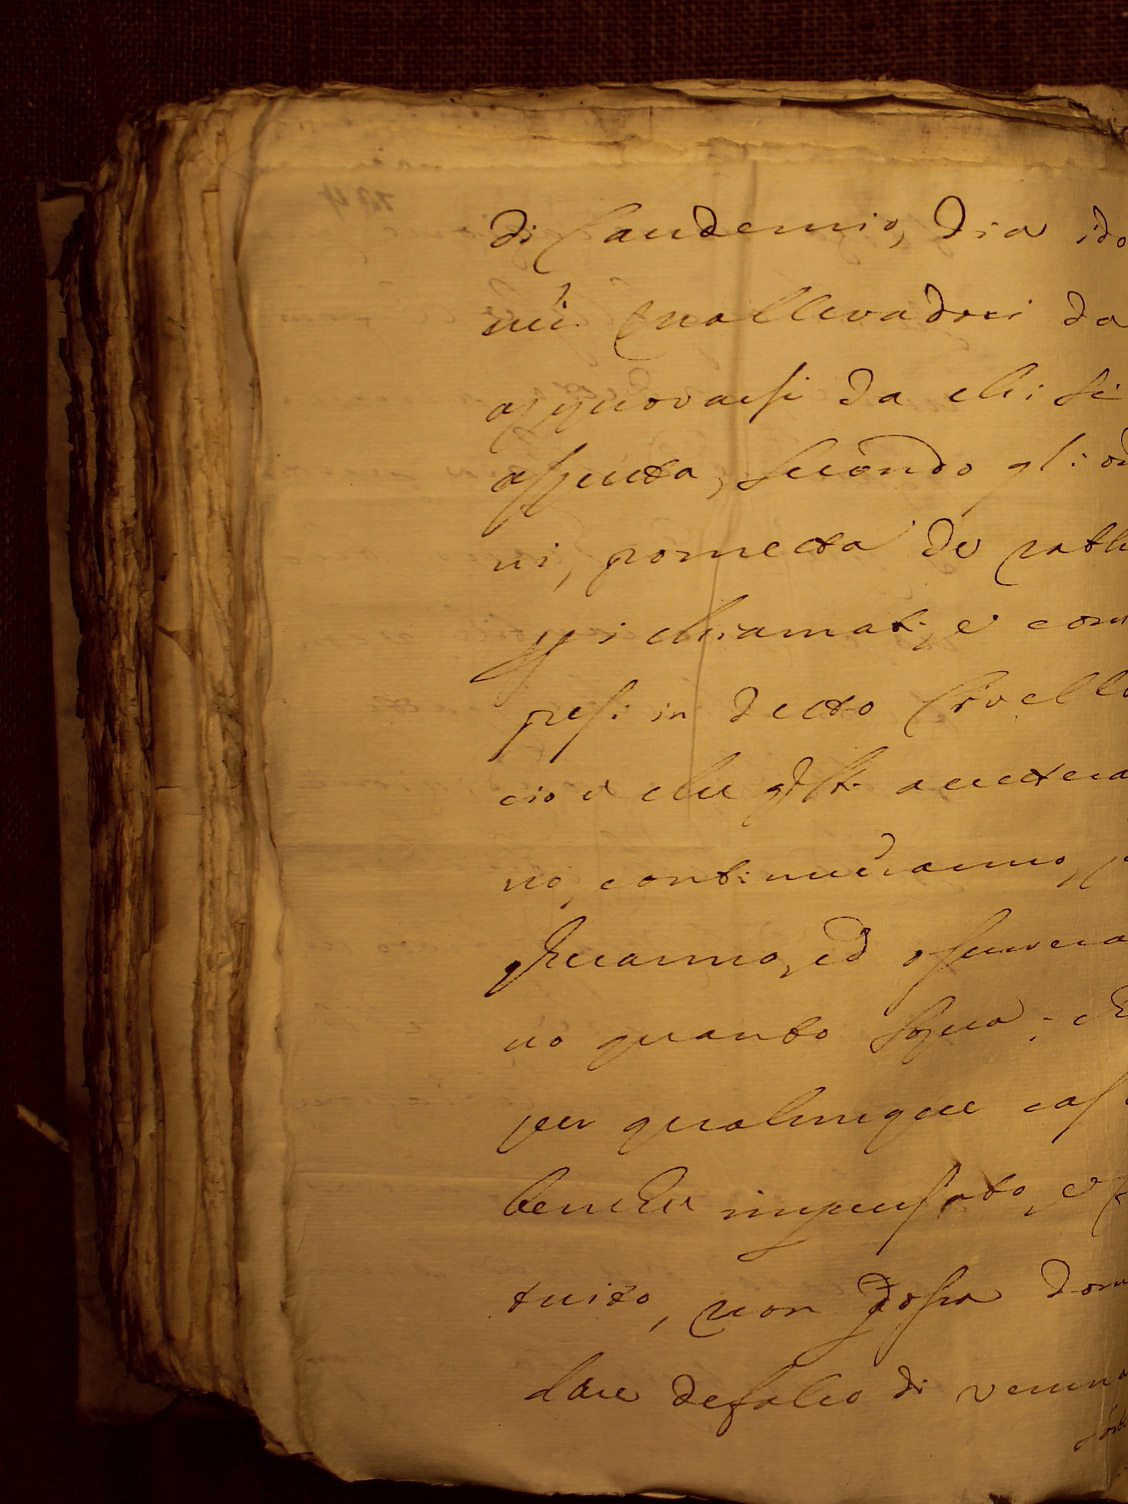 di Laudemio, dia ido
nei Mallevadori da
approvarsi da chi si
aspetta, secondo gli or
ni, prometta de ratho
ppi chiamati, e com
presi in detto Livello
cio è che q.sti accettera
no, continueranno, p
esteranno, ed osservera
no quanto sopra; che
per qualunque caso
benche impensato, e f
tuito, non possa dom
dare defalco di veruna